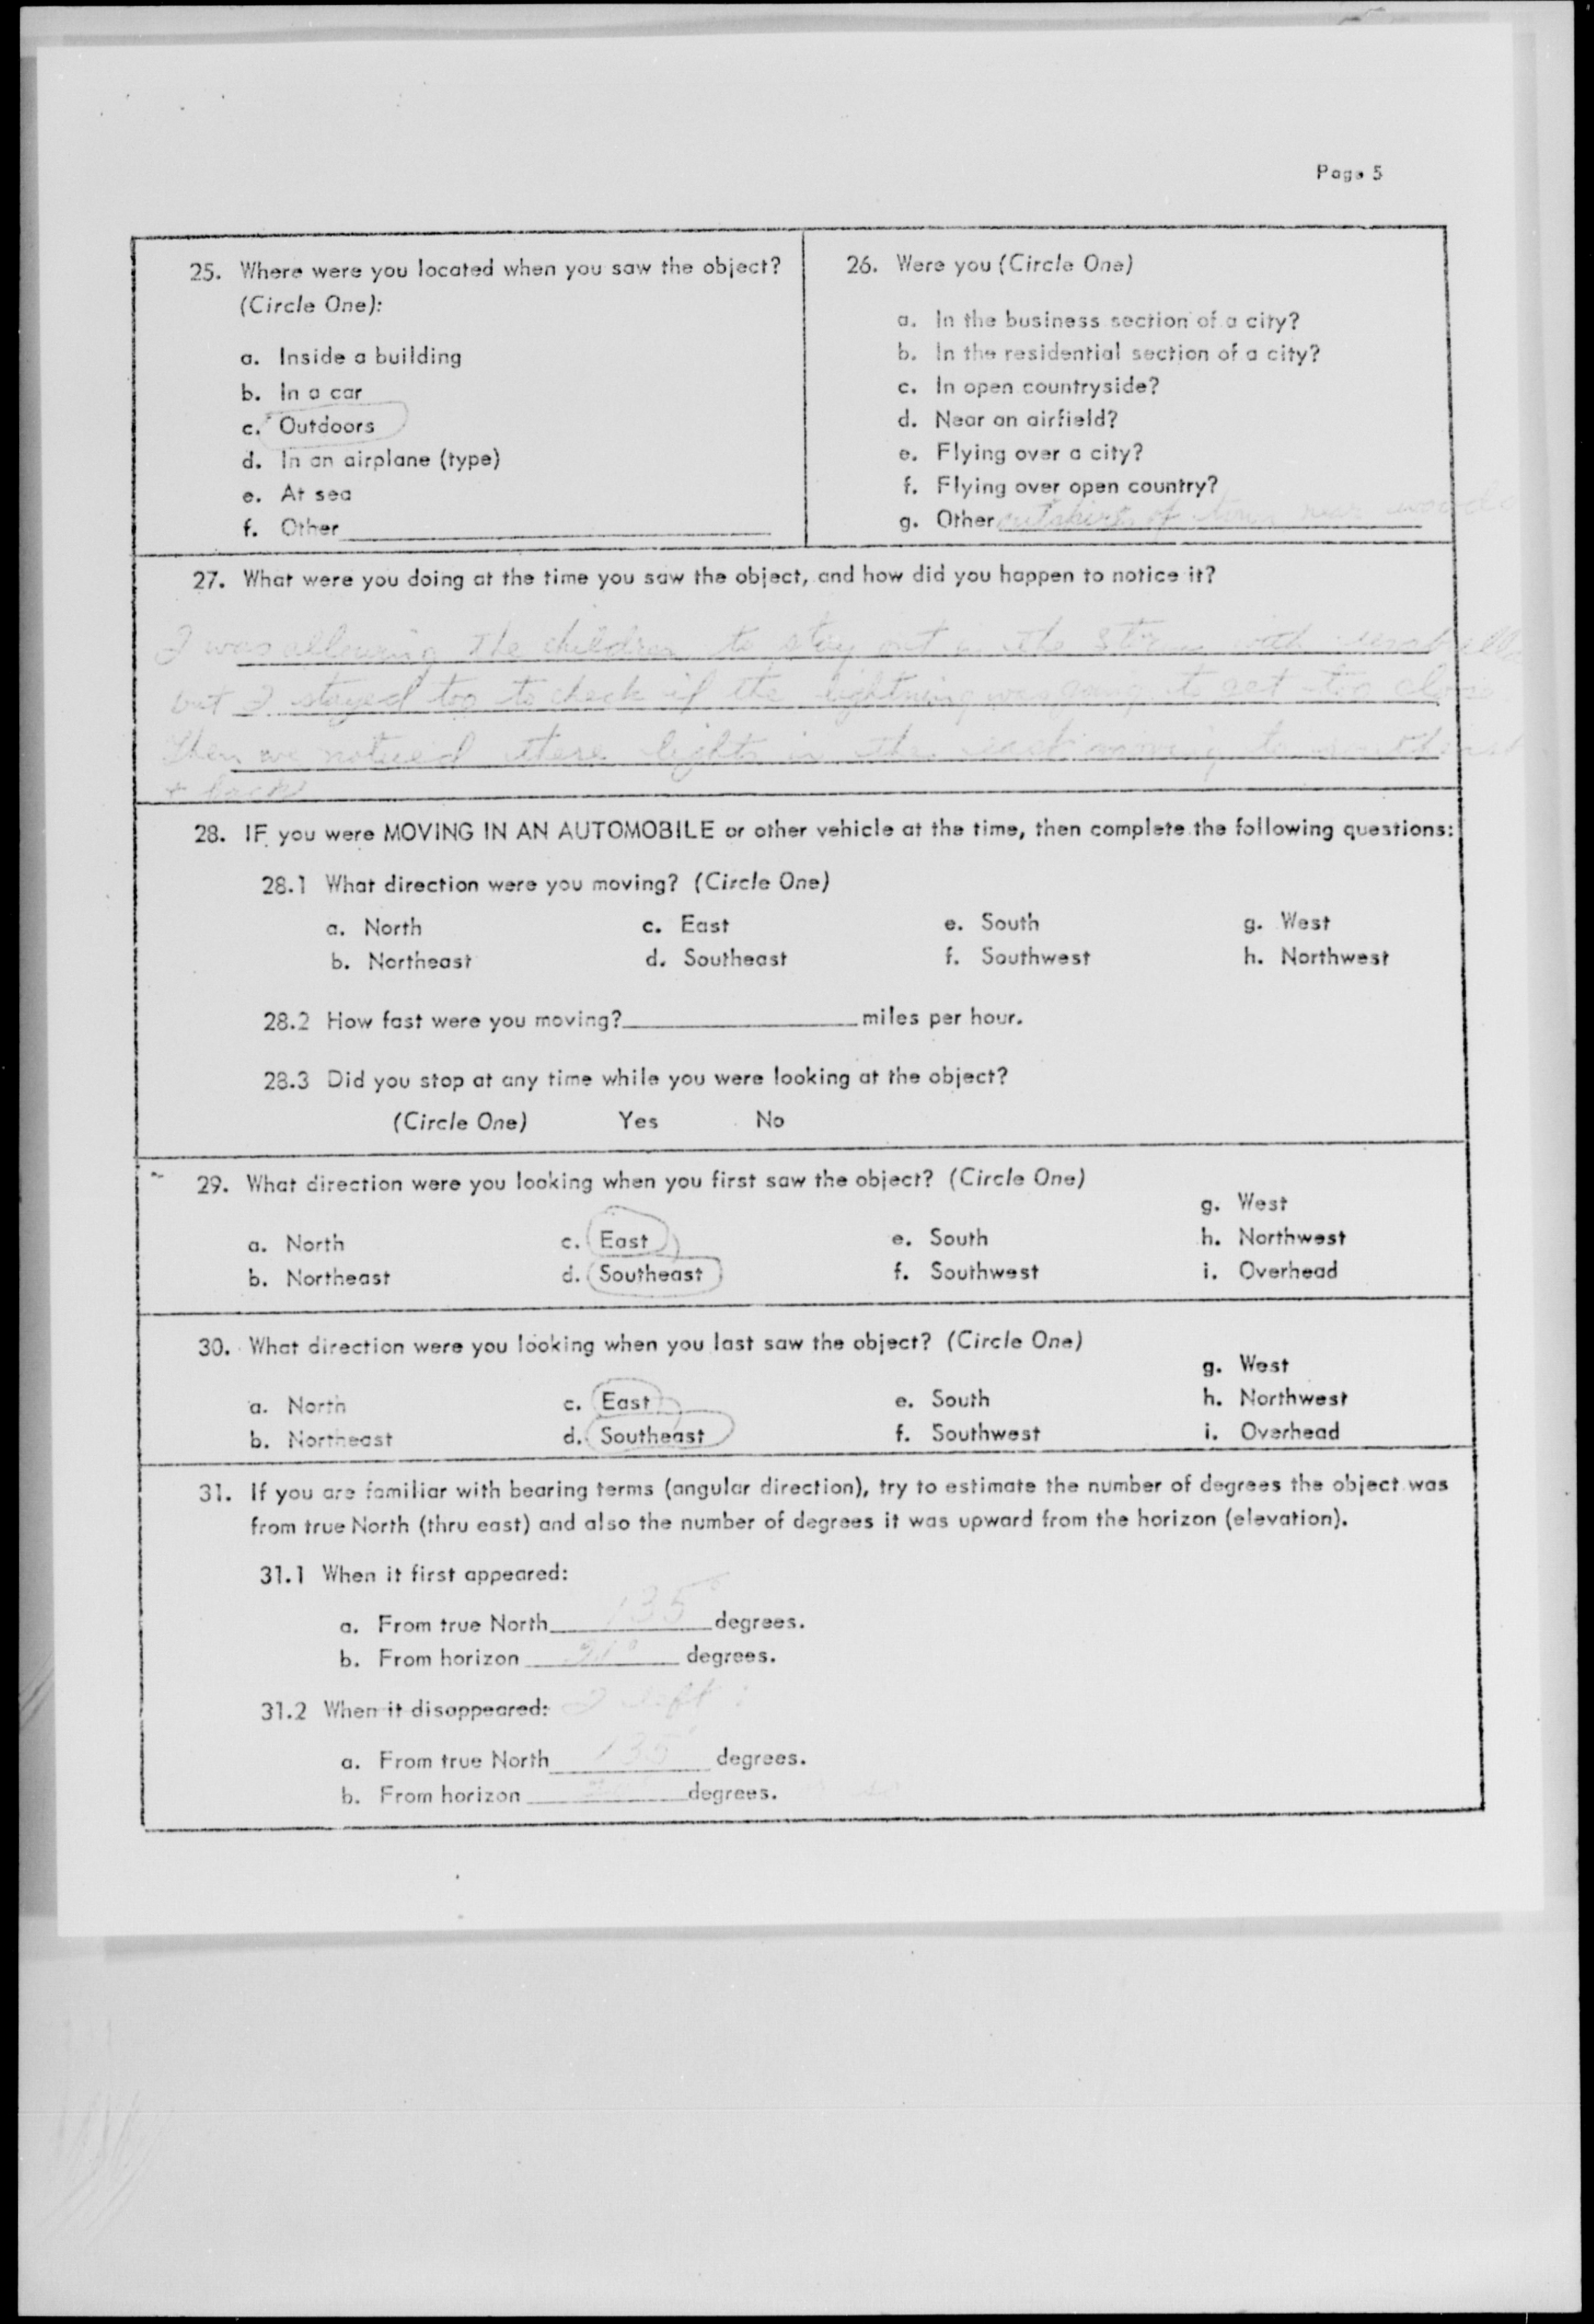 Page 5
25. Where were you located when you saw the object?
(Circle One):
a. Inside a building
b. In a car
c. Outdoors
d. In an airplane (type)
e. At sea
f. Other
26. Were you (Circle One)
a. In the business section of a city?
b. In the residential section of a city?
c. In open countryside?
d. Near an airfield?
e. Flying over a city?
f. Flying over open country?
g. Other outskirts of town near woods
27. What were you doing at the time you saw the object, and how did you happen to notice it?
I was allowing the children to stay out in the storm with umbrella
but I stayed too to check if the lightning was going to get too close
Then we noticed these lights in the east moving to
+ back
28. IF you were MOVING IN AN AUTOMOBILE or other vehicle at the time, then complete the following questions:
28.1 What direction were you moving? (Circle One)
a. North c. East e. South g. West
b. Northeast d. Southeast f. Southwest h. Northwest
28.2 How fast were you moving? miles per hour.
28.3 Did you stop at any time while you were looking at the object?
(Circle One) Yes No
29. What direction were you looking when you first saw the object? (Circle One)
g. West
a. North c. East e. South h. Northwest
b. Northeast d. Southeast f. Southwest i. Overhead
30. What direction were you looking when you last saw the object? (Circle One)
g. West
a. North c. East e. South h. Northwest
b. Northeast d. Southeast f. Southwest i. Overhead
31. If you are familiar with bearing terms (angular direction), try to estimate the number of degrees the object was
from true North (thru east) and also the number of degrees it was upward from the horizon (elevation).
31.1 When it first appeared:
a. From true North 135° degrees.
b. From horizon degrees.
31.2 When it disappeared: I left:
a. From true North 135 degrees.
b. From horizon degrees. or so